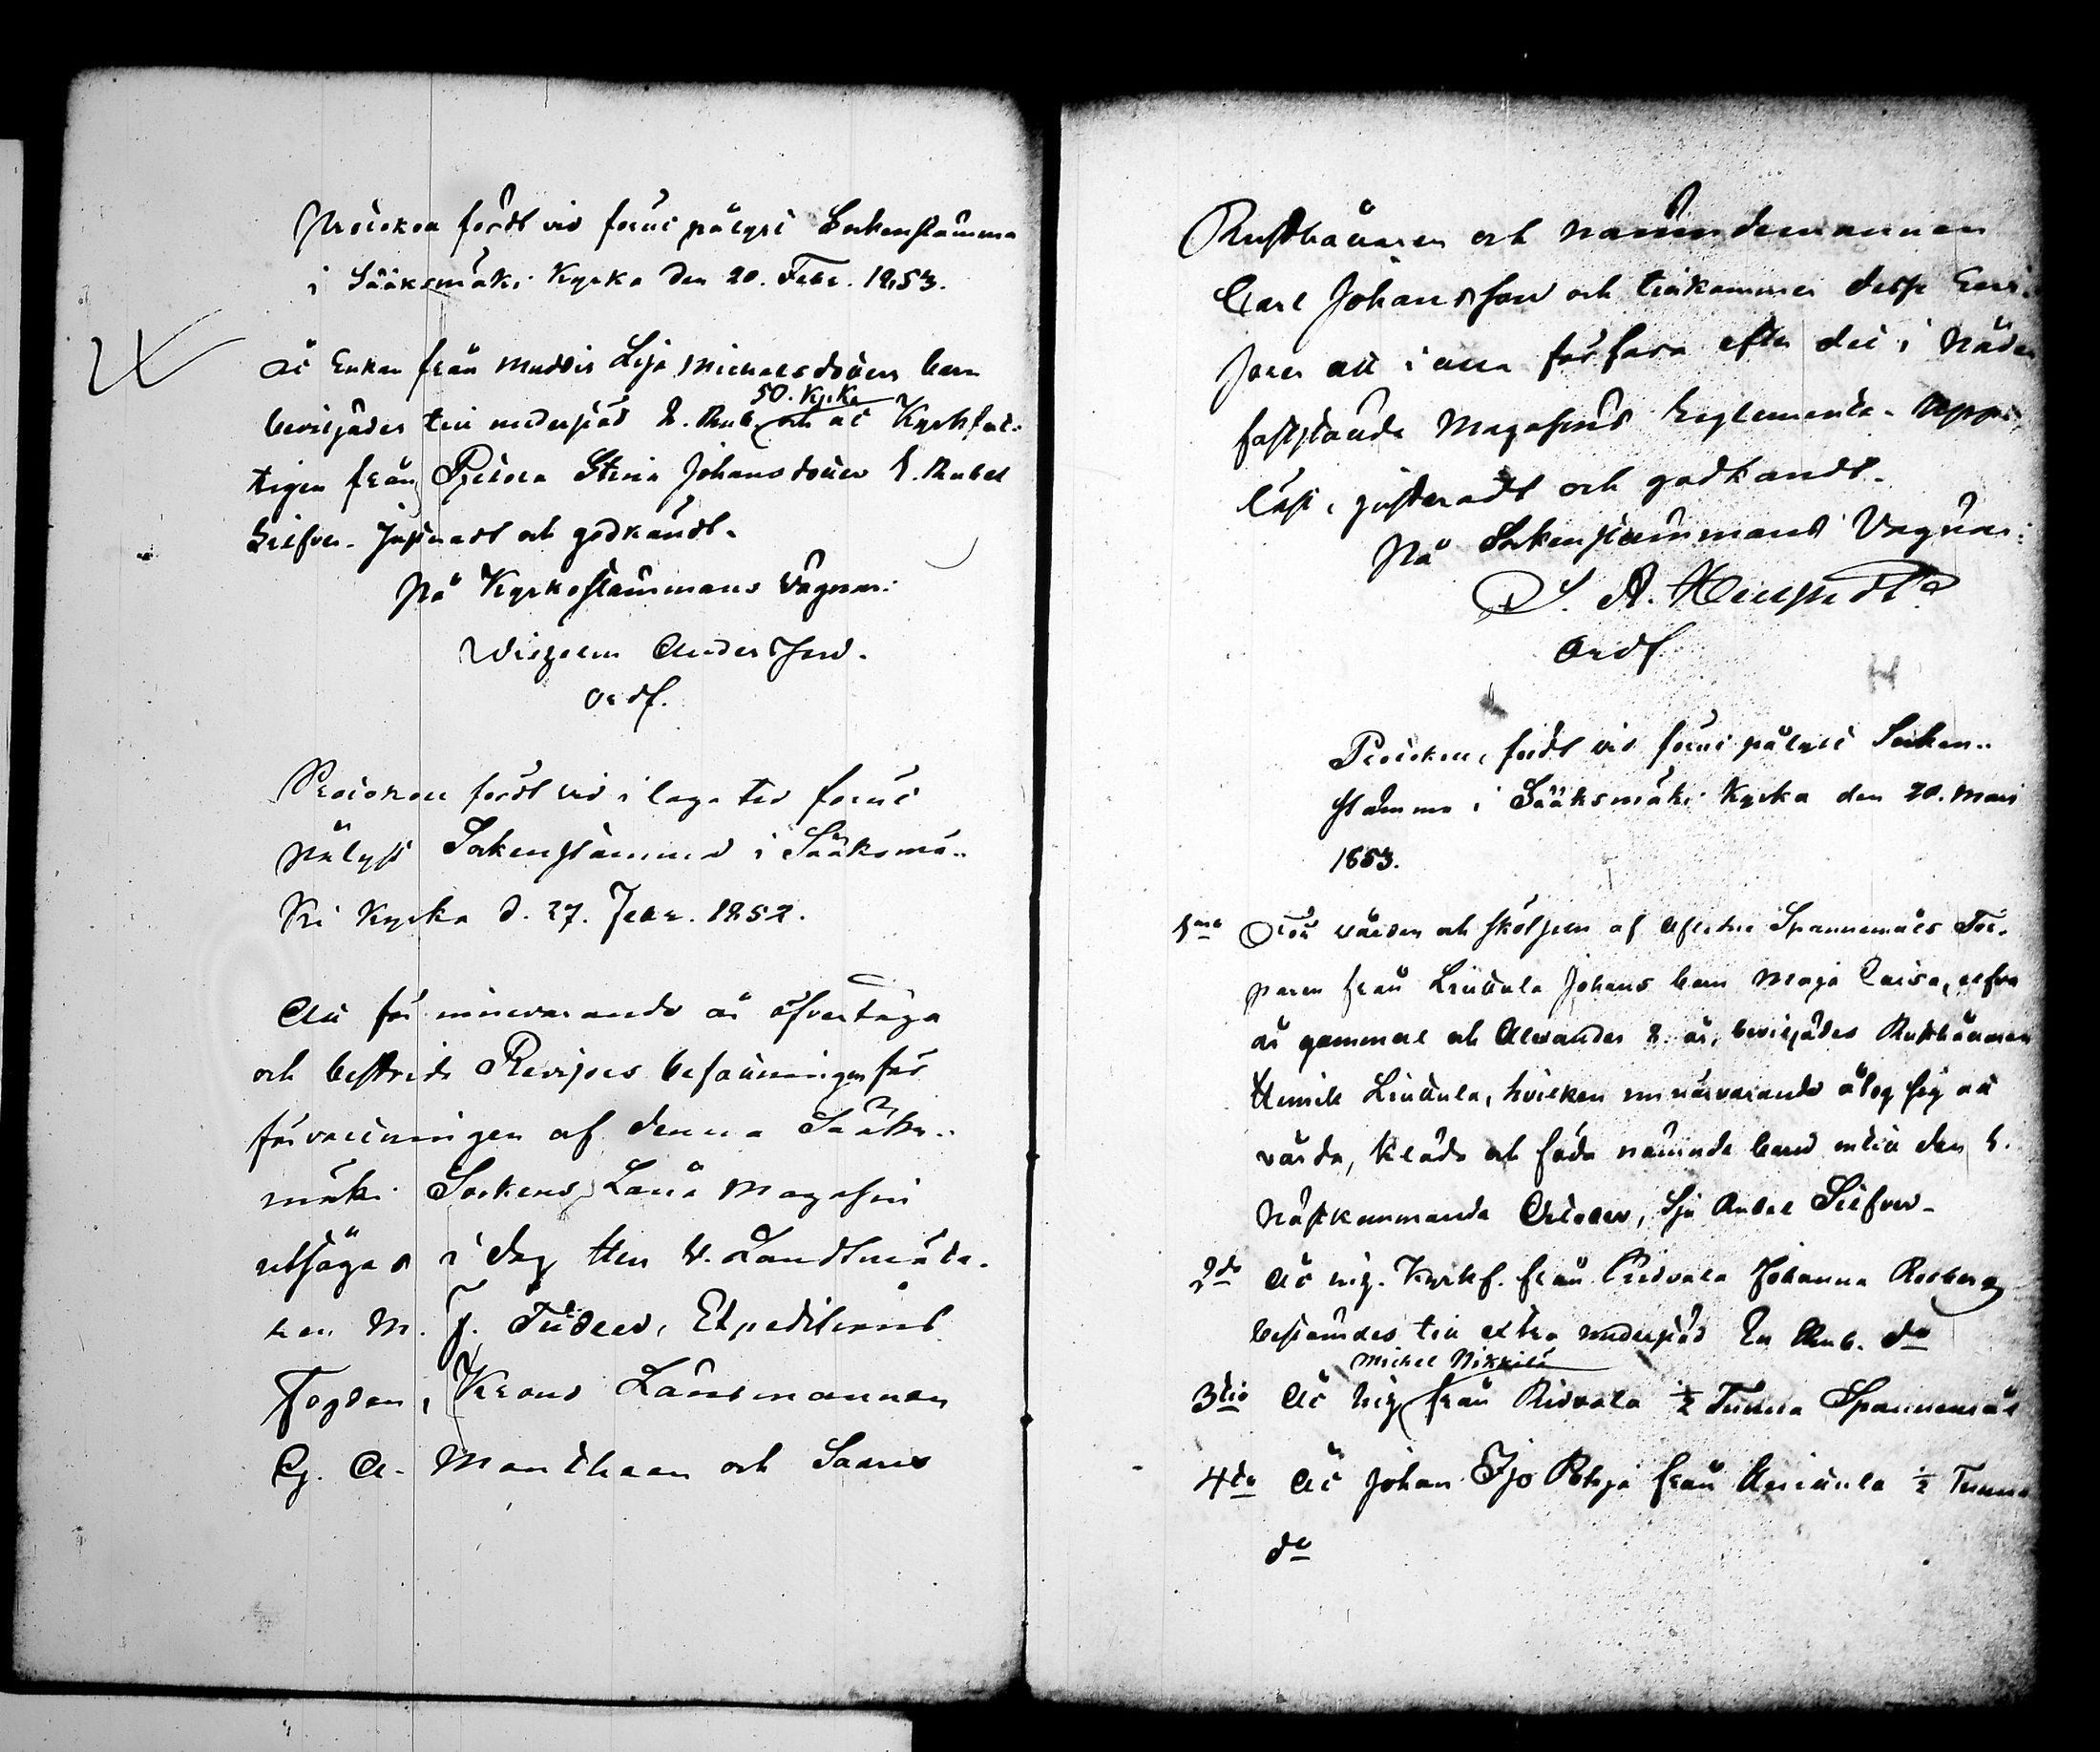 Protokoll fördt vid förut pålyst Sockenstämma
i Sääksmäki Kyrka den 20. Febr. 1853.
Åt Enkan från Muddis Lisa Michaelsdotters barn
50. Kp. Ko
beviljades till understöd 2. Rub. och åt Kyrkfat-
tigen från Pjetola Stina Johansdotter 1. Rubel
Silfver. Justeradt och godkändt.
På Kyrkostämmans vägnar:
Wilhelm Andersson.
Ordf.
Protokoll fördt vid i laga tid förut
pålyst Sockenstämma i Sääksmä-
ki Kyrka d. 27. Febr. 1852.
Att för innevarande år öfvertaga
och bestrida Revisors befattningen för
förvaltningen af denna Sääks-
mäki Sockens Låne Magasin
utsågos i dag Herr V. Landtmäta-
ren M. J. Tudeer, Expeditions
Fogden, Krono Länsmannen
G. A. Manthaan och Saaris
Rusthållaren och Nämndemannen
Carl Johansson och tillkommer desse Revi-
sorer att i allt förfara efter det i Nåder
fastställda Magasins Reglemente. Upp-
läst, justeradt och godkändt.
På Sockenstämmans Vägnar:
A.
Ordf
Protokoll, fördt vid förut pålyst Socken-
stämma i Sääksmäki Kyrka den 20. Mars
1853.
1mo För vården och skötseln af aflidne Spannemåls Tor-
paren från Linttula Johans barn Maja Caisa, elfva
år gammal och Alexander 2. år, beviljades Rusthållaren
Linttula, hvilken nu närvarande åtog sig att
vårda, kläda och föda nämnde barn intill den 1.
nästkommande October, Sju Rubel Silfver.
2do Åt inh. Kyrkf. från Ridvala Johanna Rosberg
bestämdes till extra understöd En Rub. do
Michel Nikkilä
3tio Åt inh. från Ridvala ½ Tunna Spannemål
4to Åt Johan Ijo Pohja från ½ Tunna
do